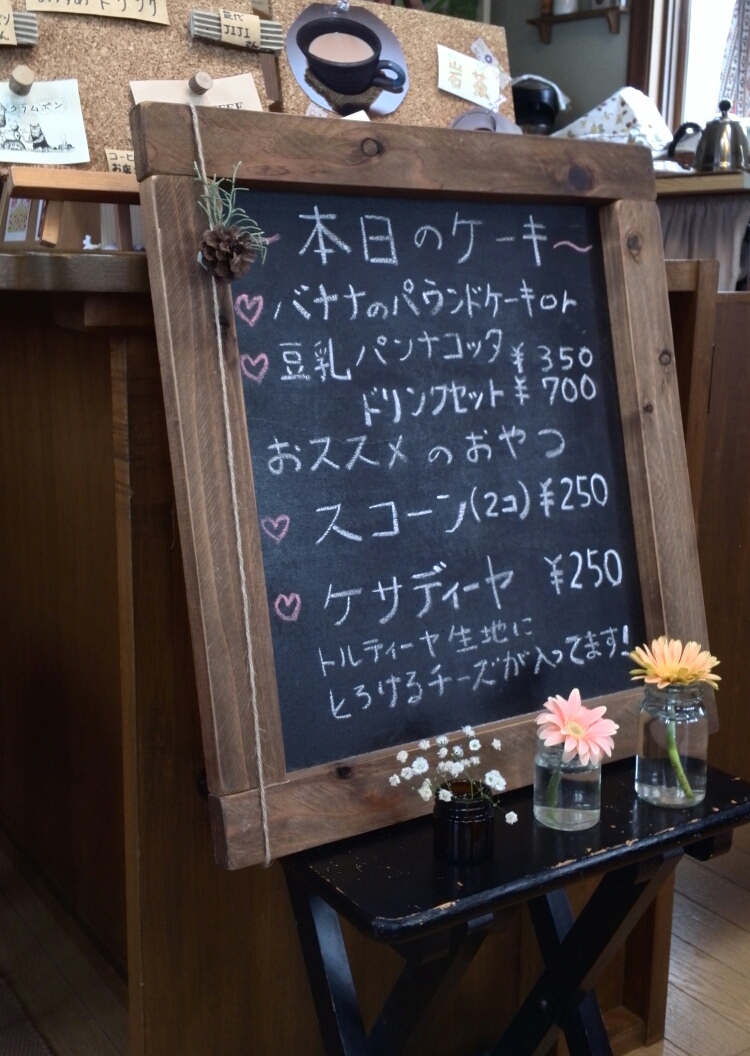 能代
JIJI
~本日のケーキ~
♡バナナのパウンドケーキor
♡豆乳パンナコッタ ¥350
ドリンクセット ¥700
おススメのおやつ
♡スコーン(2コ) ¥250
♡ケサディーヤ ¥250
トルティーヤ生地に
とろけるチーズが入ってます!